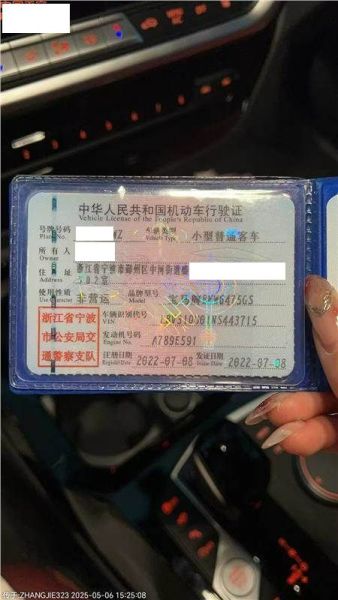 中华人民共和国机动车行驶证
Vehicle License of the People's Republic of China
号牌号码 车辆类型 小型普通客车
Plate No. Vehicle Type
所有人
Owner
住址 浙江省宁波市鄞州区中河街道
Address 502室
使用性质 非营运 品牌型号 宝马牌BMW6475GS
Use Character Model
浙江省宁波
市公安局交
通警察支队
车辆识别代号
VIN
发动机号码 A789E591
Engine No.
注册日期 2022-07-08 发证日期 2022-07-08
Register Date Issue Date
ZHANGJIE323 2025-05-06 15:25:08